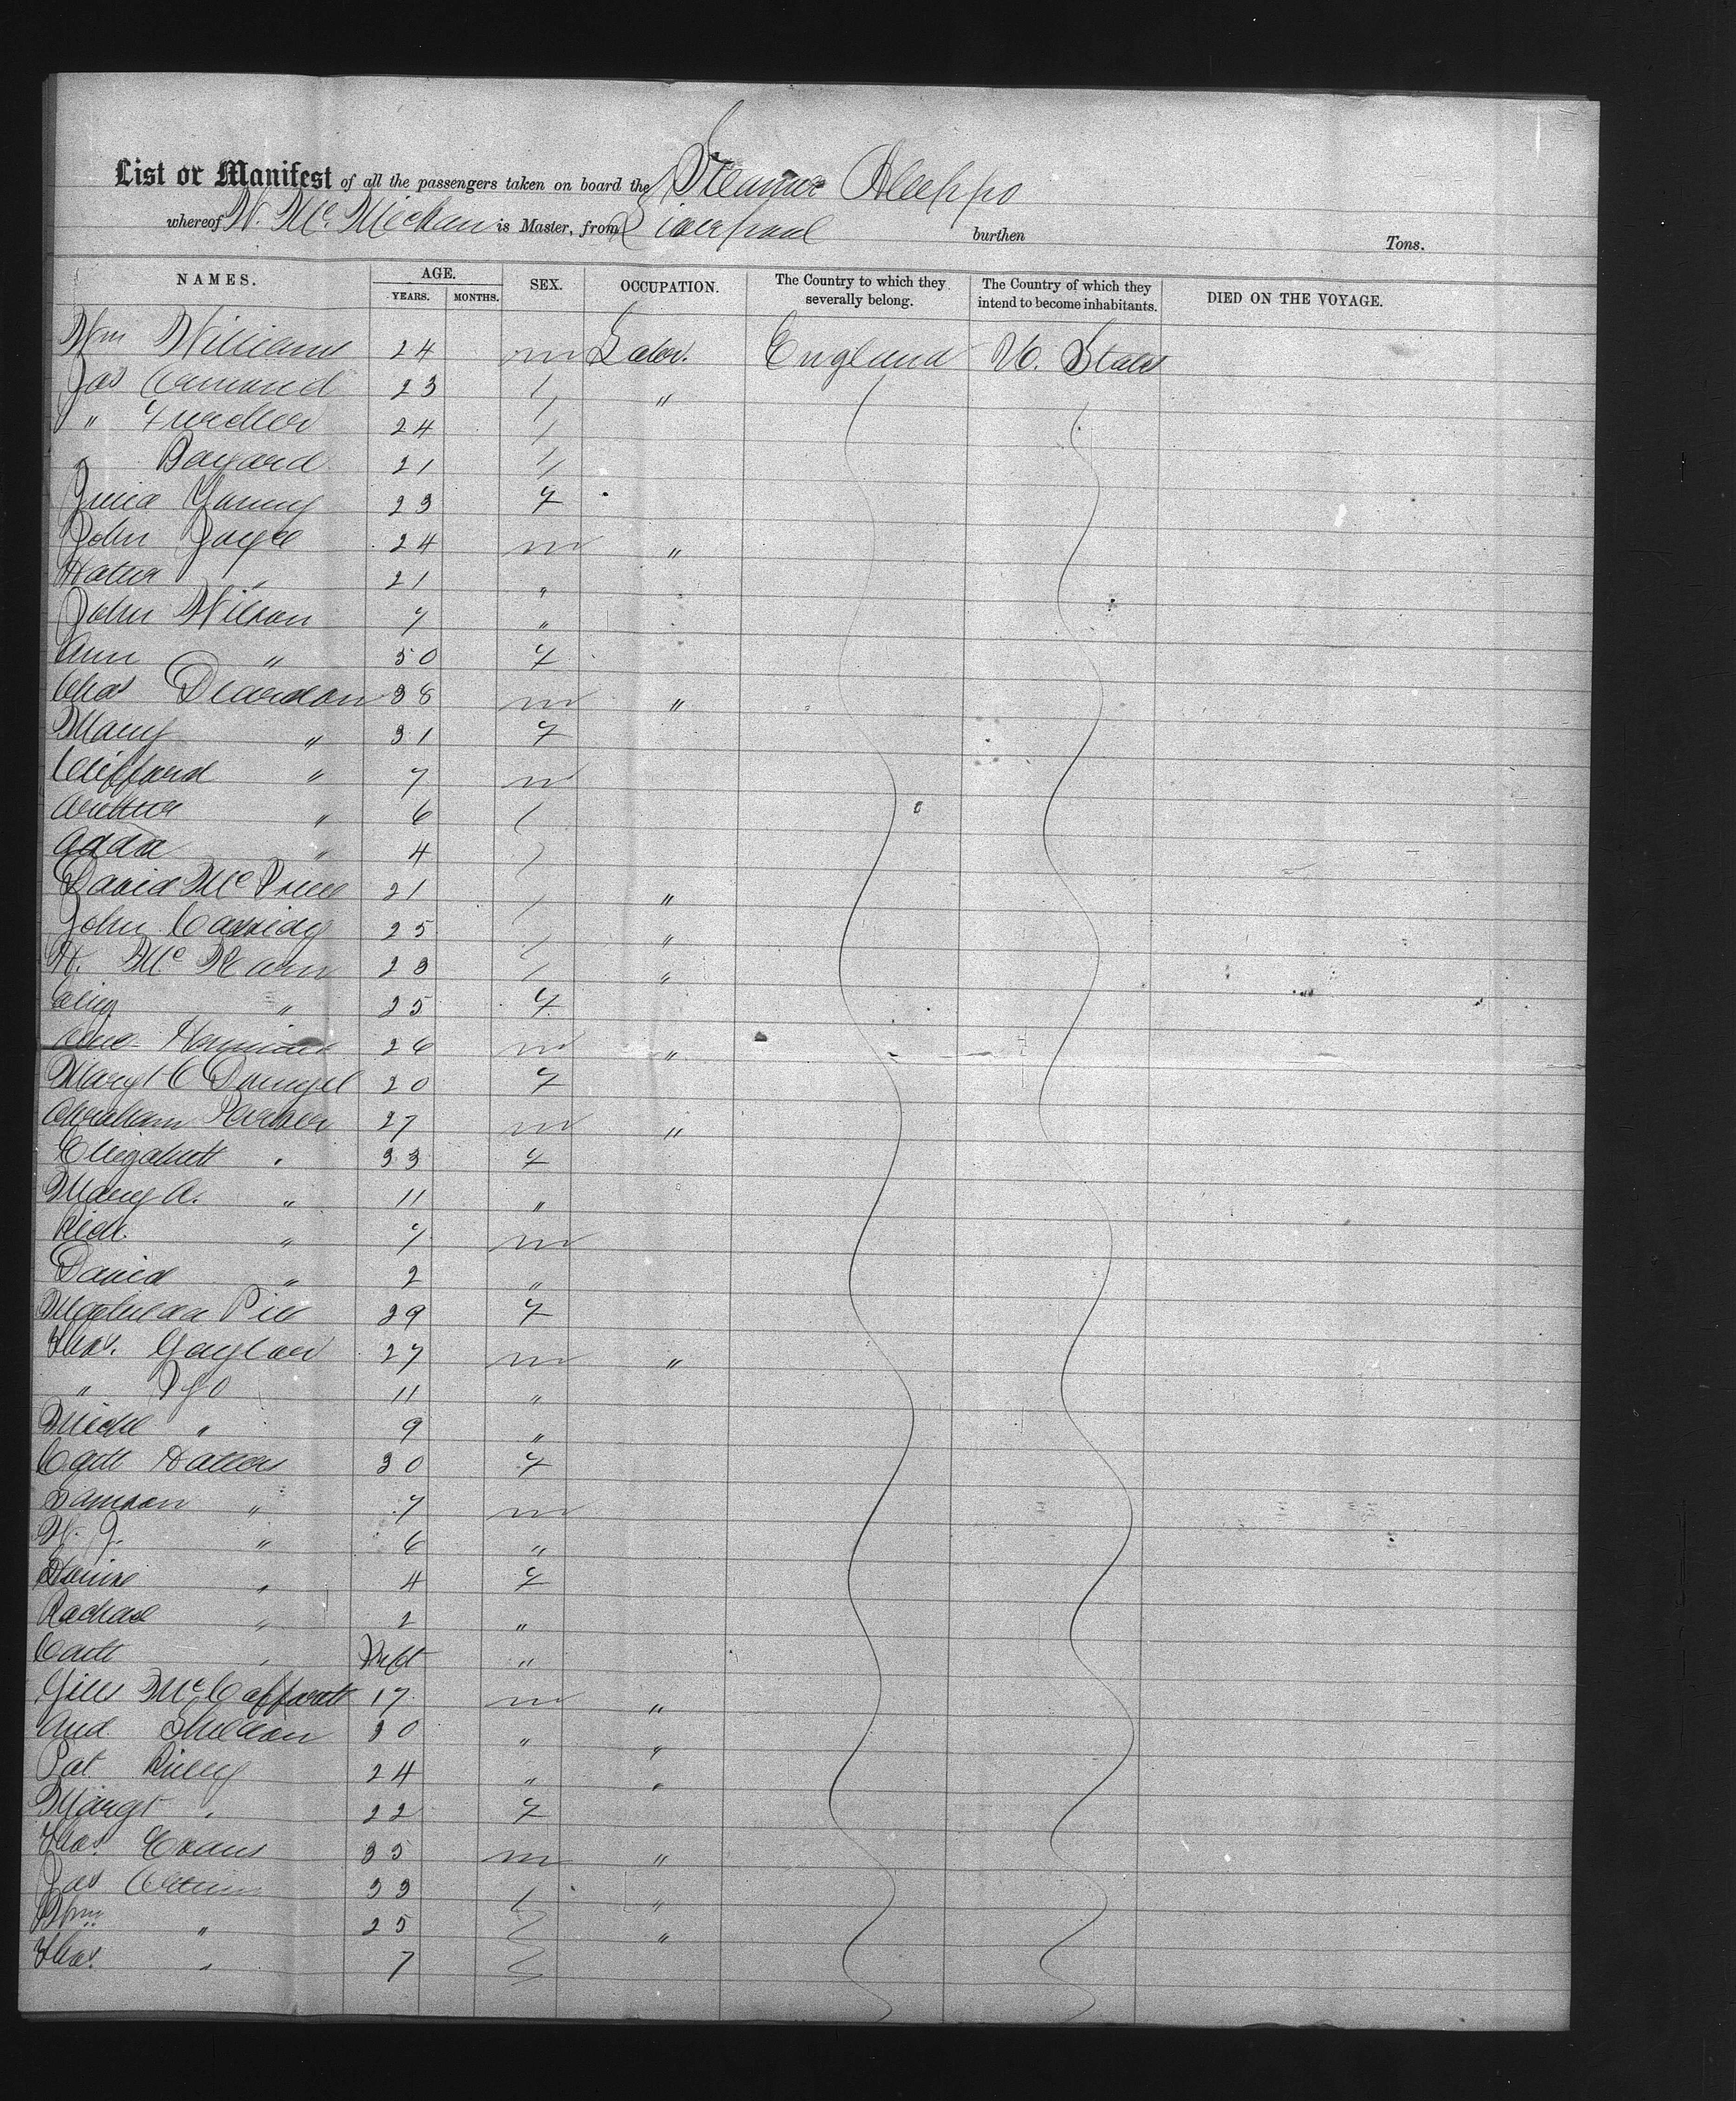 List or Manifest of all the passengers taken on board the Steamer Aleppo
whereof W. Mc Mickan is Master, from Liverpool burthen Tons.
NAMES. AGE. YEARS. MONTHS. SEX. OCCUPATION. The Country to which they severally belong. The Country of which they intend to become inhabitants. DIED ON THE VOYAGE.
Wm Williams 24 m Labr. England U. States
Jas 23 "
" 24
" Bayard 21
Young 23 f
John Joyce 24 m "
" 21 "
John Wilson 7 "
Ann " 50 f
Chas Deardon 38 m "
Mary " 31 f
Clifford " 7 m
Arthur " 6
Adda " 4
David Mc 21 "
John Cassidy 25 "
Mc 23 "
Eliz " 25 f
26 m "
Margt 20 f
Abraham 27 m "
Elizabeth " 33 f
Mary A. " 11 "
Rich. " 7 m
David " 2 "
29 f
Thos. Gaylor 27 m "
" 11 "
Michl " 9 "
Cath 30 f
Samson " 7 m
W. J. " 6 "
Louise " 4 f
Rachael " 2 "
Cath " Inft "
Mc Cafferett 17 m "
And. 30 " "
Pat Riley 24 " "
Margt " 22 f
Thos. Evans 35 m "
Jas 33 "
Wm " 25 "
Thos. " 7